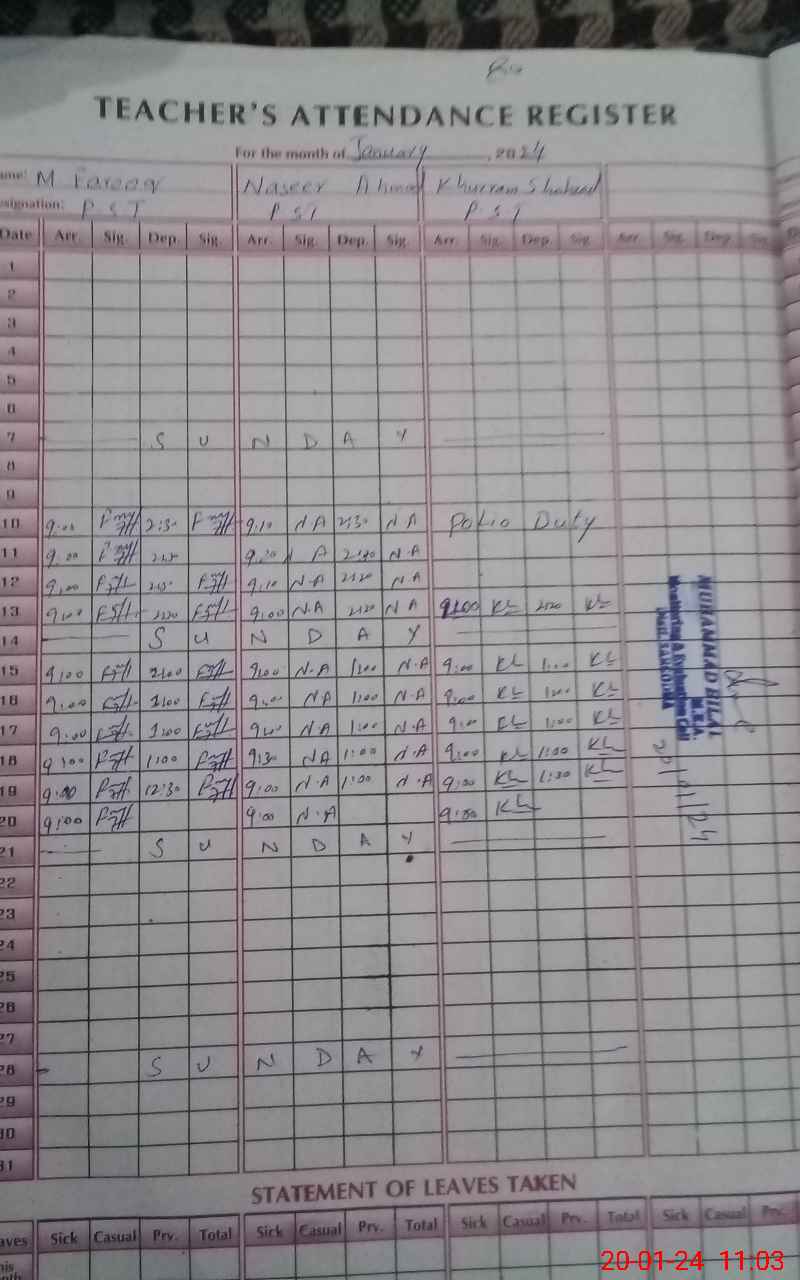 TEACHER'S ATTENDANCE REGISTER
For the month of January, 2024
ame: M Farooq Naseer Ahmad Khurram Shahzad
signation: P.S.T P ST P.S.T
Date Arr. Sig. Dep. Sig. Arr. Sig. Dep. Sig. Arr. Sig. Dep. Sig. Arr. Sig. Dep. Sig.
1
2
3
4
5
6
7 S U N D A Y
8
9
10 9:00 2:30 9:10 N A 2:30 N A Polio Duty
11 9:00 A N.A
12 9:00 9:10 N.A N A
13 9:00 9:00 N.A N A 9:00 Kh Kh
14 S U N D A Y
15 9:00 1:00 9:00 N.A 1:00 N.A 9:00 Kh 1:00 Kh
16 9:00 1:00 N A 1:00 N.A 9:00 Kh 1:00 Kh
17 9:00 1:00 N A 1:00 N.A 9:00 Kh 1:00 Kh
18 9:00 1:00 9:30 N A 1:00 N.A 9:00 Kh 1:00 Kh
19 9:00 12:30 9:00 N.A 1:00 N.A 9:00 Kh 1:30 Kh
20 9:00 9:00 N.A 9:00 Kh
21 S U N D A Y
22
23
24
25
26
27
28 S U N D A Y
29
30
31
MUHAMMAD BILAL
M.E.A.
Monitoring & Evaluation Cell
Distt. SARGODHA
20/01/24
STATEMENT OF LEAVES TAKEN
aves Sick Casual Prv. Total Sick Casual Prv. Total Sick Casual Prv. Total Sick Casual Prv.
his
nth
20-01-24 11:03